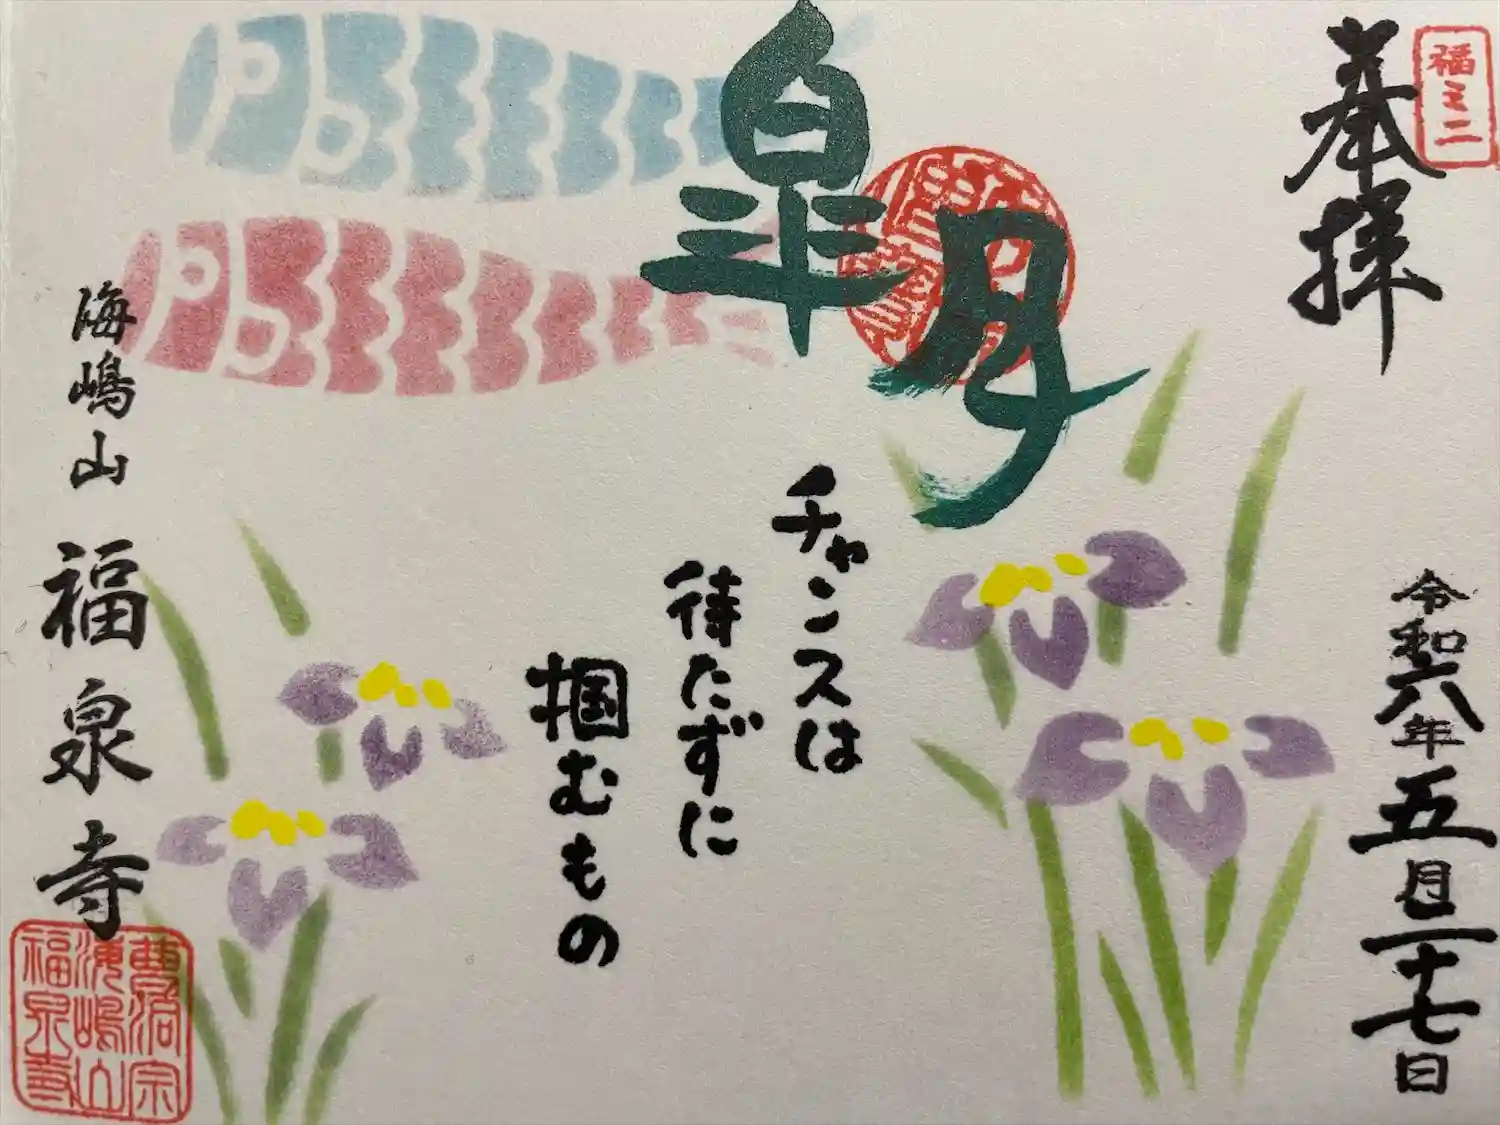 福ミニ
奉拝
令和六年五月二十七日
皐月
チャンスは
待たずに
掴むもの
海嶋山 福泉寺
曹洞宗
海嶋山
福泉寺